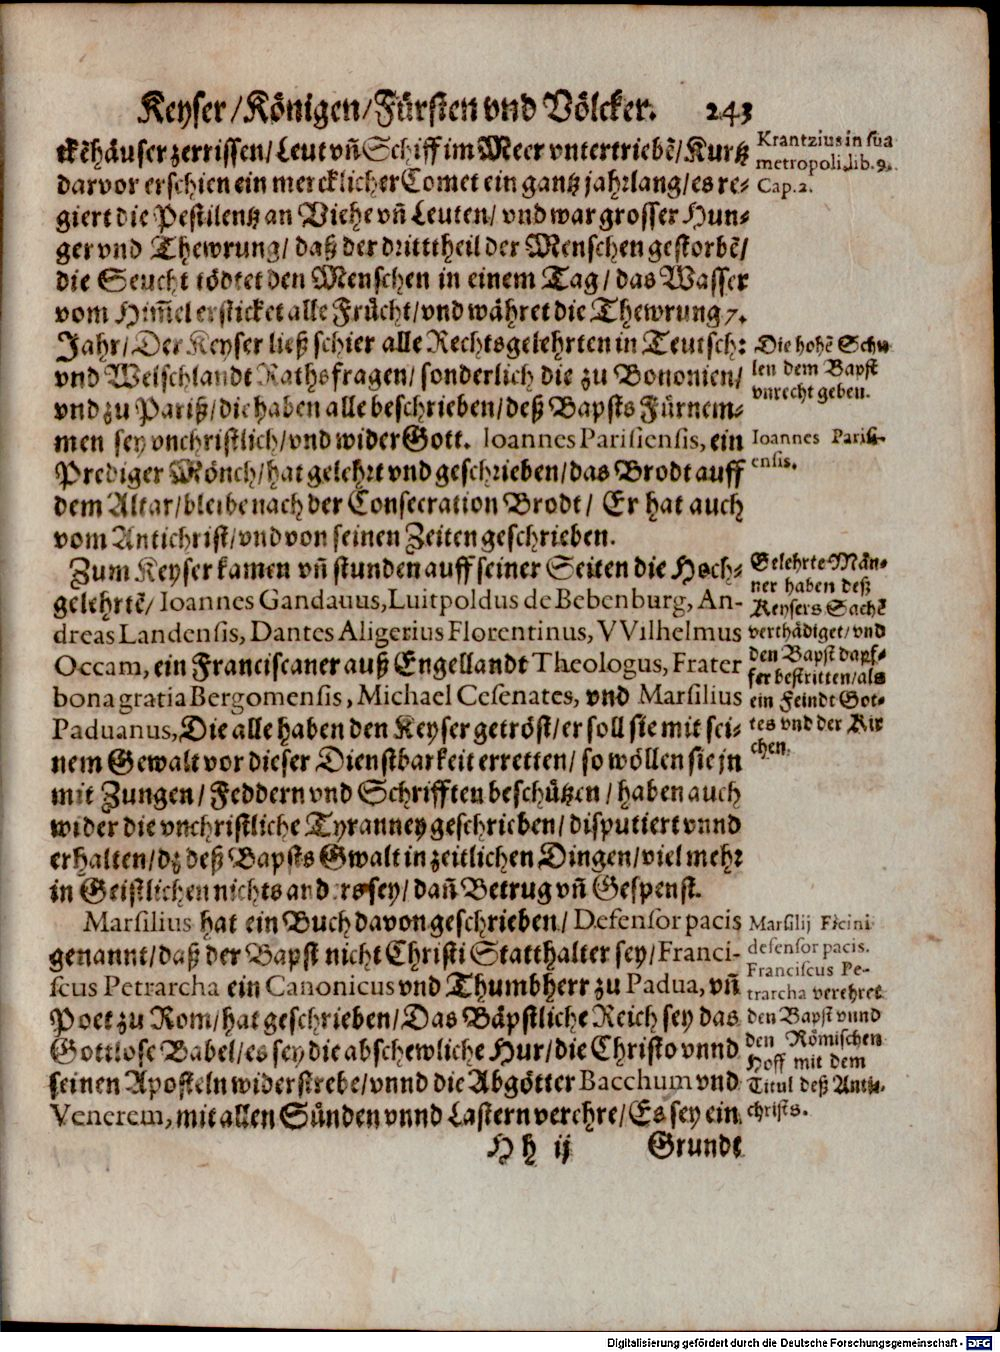 Keyser/Königen/Fürsten vnd Völcker. 243
ckẽhäuser zerrissen/Leut vñ Schiff im Meer vntertriebẽ/Kurtz
darvor erschien ein mercklicher Comet ein gantz jahrlang/es re-
giert die Pestilentz an Viehe vñ Leuten/ vnd war grosser Hun-
ger vnd Thewrung/ daß der dritttheil der Menschen gestorbẽ/
die Seucht tödtet den Menschen in einem Tag/ das Wasser
vom Him̃el ersticket alle Frücht/vnd währet die Thewrung 7.
Jahr/Der Keyser ließ schier alle Rechtsgelehrten in Teutsch-
vnd Welschlandt Rathsfragen/ sonderlich die zu Bononien/
vnd zu Pariß/die haben alle beschrieben/deß Bapsts Fürnem-
men sey vnchristlich/vnd wider Gott. Ioannes Parisiensis, ein
Prediger Mönch/hat gelehrt vnd geschrieben/das Brodt auff
dem Altar/bleibe nach der Consecration Brodt/ Er hat auch
vom Antichrist/vnd von seinen Zeiten geschrieben.
Zum Keyser kamen vñ stunden auff seiner Seiten die Hoch-
gelehrtẽ/ Ioannes Gandauus, Luitpoldus de Bebenburg, An-
dreas Landensis, Dantes Aligerius Florentinus, VVilhelmus
Occam, ein Franciscaner auß Engellandt Theologus, Frater
bona gratia Bergomensis, Michael Cesenates, vnd Marsilius
Paduanus, Die alle haben den Keyser getröst/er soll sie mit sei-
nem Gewalt vor dieser Dienstbarkeit erretten/ so wöllen sie jn
mit Zungen/ Feddern vnd Schrifften beschützen/ haben auch
wider die vnchristliche Tyranney geschrieben/ disputiert vnnd
erhalten/dz deß Bapsts Gwalt in zeitlichen Dingen/viel mehr
in Geistlichen nichts anders sey/ dañ Betrug vñ Gespenst.
Marsilius hat ein Buch davon geschrieben/ Defensor pacis
genannt/daß der Bapst nicht Christi Statthalter sey/Franci-
scus Petrarcha ein Canonicus vnd Thumbherr zu Padua, vñ
Poet zu Rom/hat geschrieben/Das Bäpstliche Reich sey das
Gottlose Babel/es sey die abschewliche Hur/die Christo vnnd
seinen Aposteln widerstrebe/vnnd die Abgötter Bacchum vnd
Venerem, mit allen Sünden vnnd Lastern verehre/Es sey ein
Hh ij Grundt
Krantzius in sua
metropoli. lib. 9.
Cap. 2.
Die hohẽ Schu
len dem Bapst
vnrecht geben.
Ioannes Parisi-
ensis.
Gelehrte Män-
ner haben deß
Keysers Sachẽ
verthädiget/vnd
den Bapst dapf-
fer bestritten/als
ein Feindt Got-
tes vnd der Kir
chen.
Marsilij Ficini
defensor pacis.
Franciscus Pe-
trarcha verehret
den Bapst vnnd
den Römischen
Hoff mit dem
Titul deß Anti-
christs.
Digitalisierung gefördert durch die Deutsche Forschungsgemeinschaft - DFG